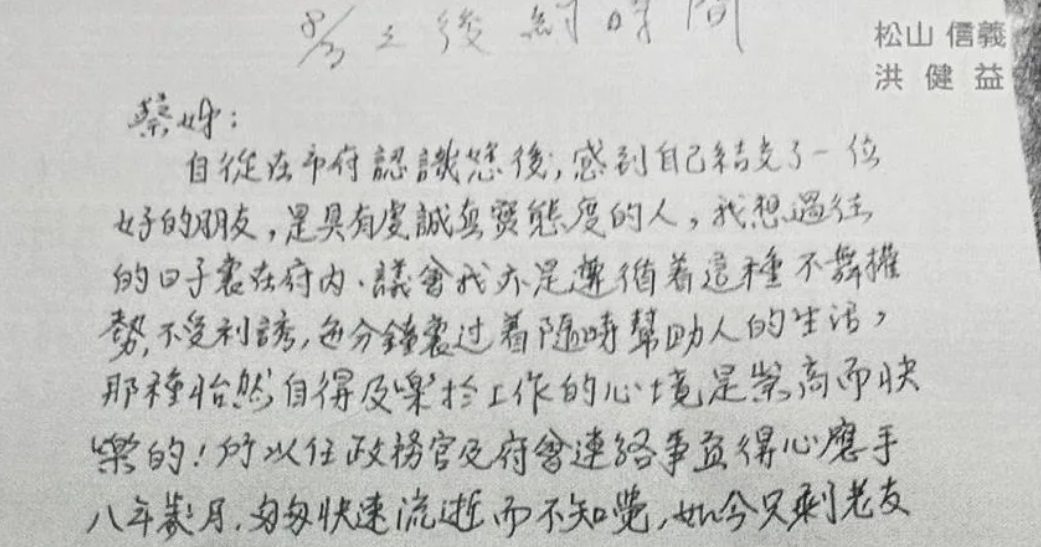 8/3之後約時間
松山 信義
洪健益
蔡姊:
自從在市府認識您後,感到自己結交了一位
好的朋友,是具有虔誠真實態度的人,我想過往
的日子裏在府內、議會我亦是遵循着這種不舞權
勢,不受利誘,每分鐘裏过着隨時幫助人的生活,
那種怡然自得及樂於工作的心境是崇高而快
樂的!所以任政務官及府會連絡事宜得心應手
八年歲月,匆匆快速流逝而不知覺,如今只剩老友